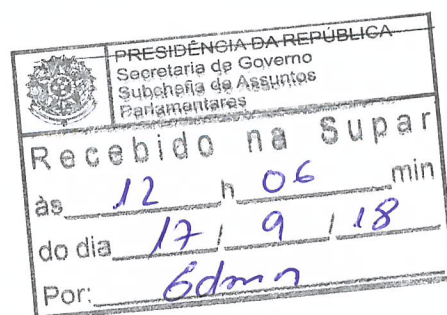 PRESIDÊNCIA DA REPÚBLICA
Secretaria de Governo
Subchefia de Assuntos
Parlamentares
Recebido na Supar
às 12 h 06 min
do dia 17 / 9 / 18
Por: